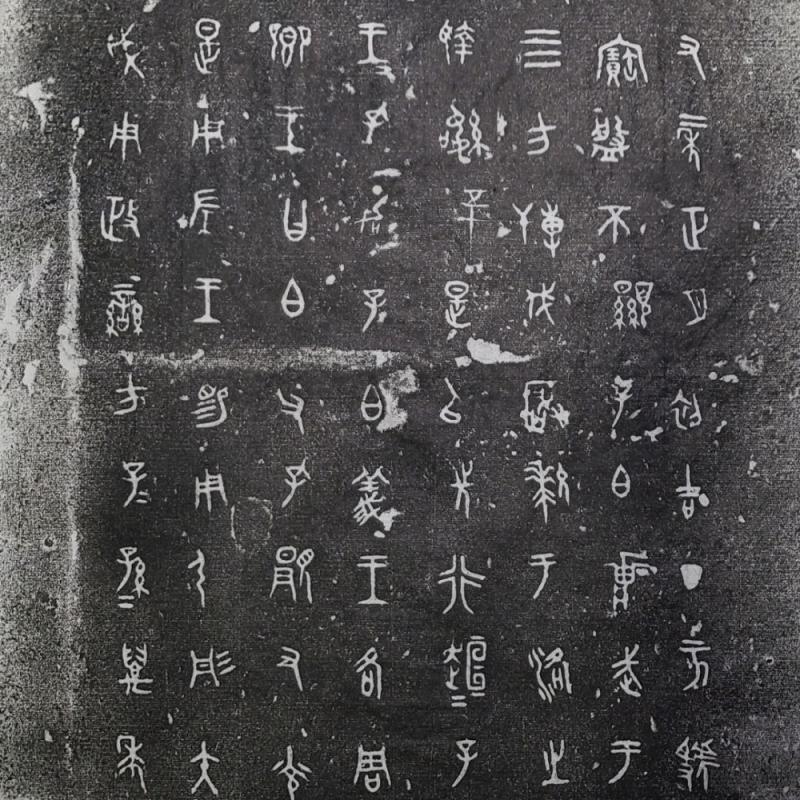 又二年正月初吉丁亥虢
寶盤不顯子白壯武于
四方搏伐玁狁于洛之
執訊五十是以先行桓桓子
王孔加子白義王各周
鄉王曰白父孔顯又光
是用左王賜用弓彤矢
戉用政蠻方子子孫孫萬年